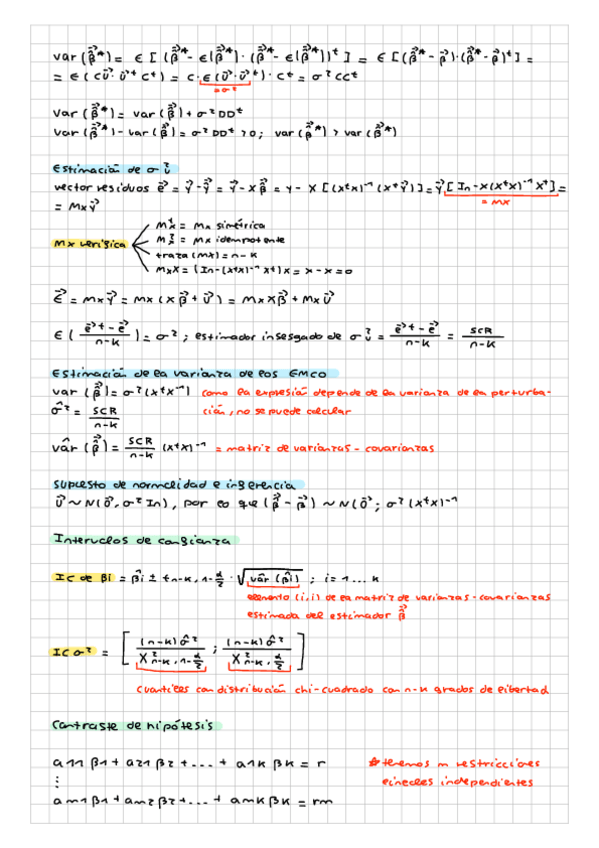 var (β⃗̂*) = E [ (β⃗̂* - E(β⃗̂*)) · (β⃗̂* - E(β⃗̂*))ᵗ ] = E [(β⃗̂* - β⃗)·(β⃗̂* - β⃗)ᵗ] =
= E (C u⃗ · u⃗ᵗ Cᵗ) = C · E (u⃗ · u⃗ᵗ) · Cᵗ = σ² C Cᵗ
= σ²
var (β⃗̂*) = var (β⃗̂) + σ² D Dᵗ
var (β⃗̂*) - var (β⃗̂) = σ² D Dᵗ > 0 ; var (β⃗̂*) > var (β⃗̂*)
Estimación de σ²u
vector residuos e⃗ = Y⃗ - Y⃗̂ = Y⃗ - Xβ⃗̂ = Y - X [(XᵗX)⁻¹ (XᵗY⃗)] = Y⃗ [In - X(XᵗX)⁻¹ Xᵗ] =
= MX
= MX Y⃗
MX verifica
MXᵗ = MX simétrica
MX² = MX idempotente
traza (MX) = n - k
MXX = (In - (XᵗX)⁻¹ Xᵗ) X = X - X = 0
e⃗ = MX Y⃗ = MX (Xβ⃗ + u⃗) = MX Xβ⃗ + MX u⃗
E ( e⃗ᵗ - e⃗ / n-k ) = σ² ; estimador insesgado de σ²u = e⃗ᵗ - e⃗ / n-k = SCR / n-k
Estimación de la varianza de los EMCO
var (β⃗̂) = σ² (XᵗX⁻¹) como la expresión depende de la varianza de la perturba-
σ̂² = SCR / n-k ción, no se puede calcular
vâr (β⃗̂) = SCR / n-k (XᵗX)⁻¹ = matriz de varianzas - covarianzas
Supuesto de normalidad e inferencia
u⃗ ~ N(0⃗, σ² In), por lo que (β⃗̂ - β⃗) ~ N(0⃗; σ² (XᵗX)⁻¹
Intervalos de confianza
IC de βi = β̂i ± t n-k, 1-α/2 · √vâr (β̂i) ; i = 1 ... k
elemento (i,i) de la matriz de varianzas - covarianzas
estimada del estimador β⃗̂
IC σ² = [ (n-k) σ̂² / X² n-k, 1-α/2 ; (n-k) σ̂² / X² n-k, α/2 ]
cuantiles con distribución chi-cuadrado con n-k grados de libertad
Contraste de hipótesis
a11 β1 + a21 β2 + ... + a1k βk = r * tenemos m restricciones
⋮ lineales independientes
am1 β1 + am2 β2 + ... + amk βk = rm